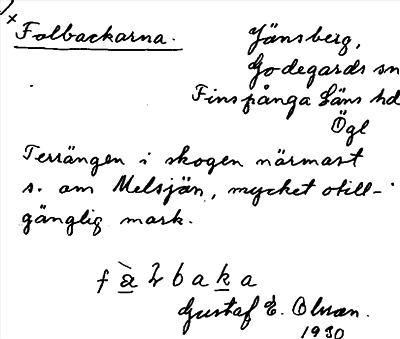 Folbackarna.
Jänsberg,
Godegards sn
Finspånga Läns hd
Ögl
Terrängen i skogen närmast
s. om Melsjön, mycket otill-
gänglig mark.
baka
Gustaf E. Olsson.
1930